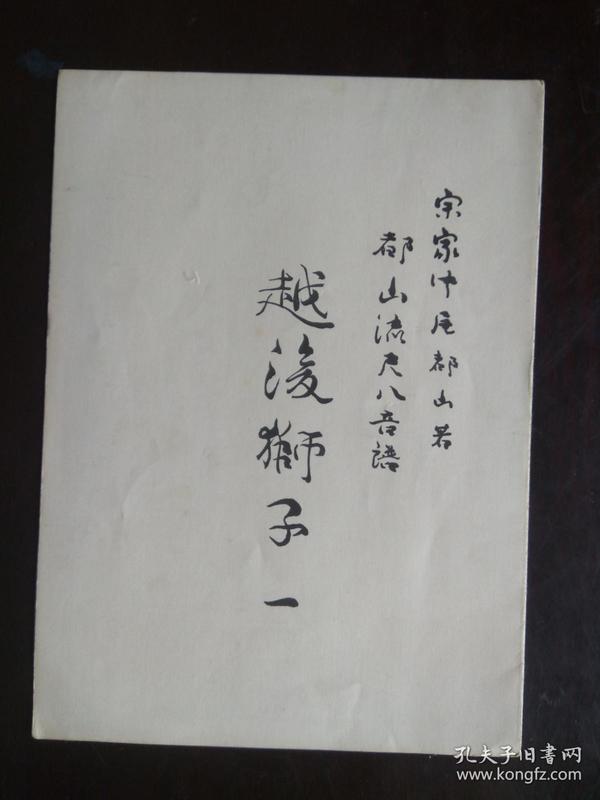 宗家中尾都山著
都山流尺八音譜
越後獅子 一
孔夫子旧書网
www.kongfz.com